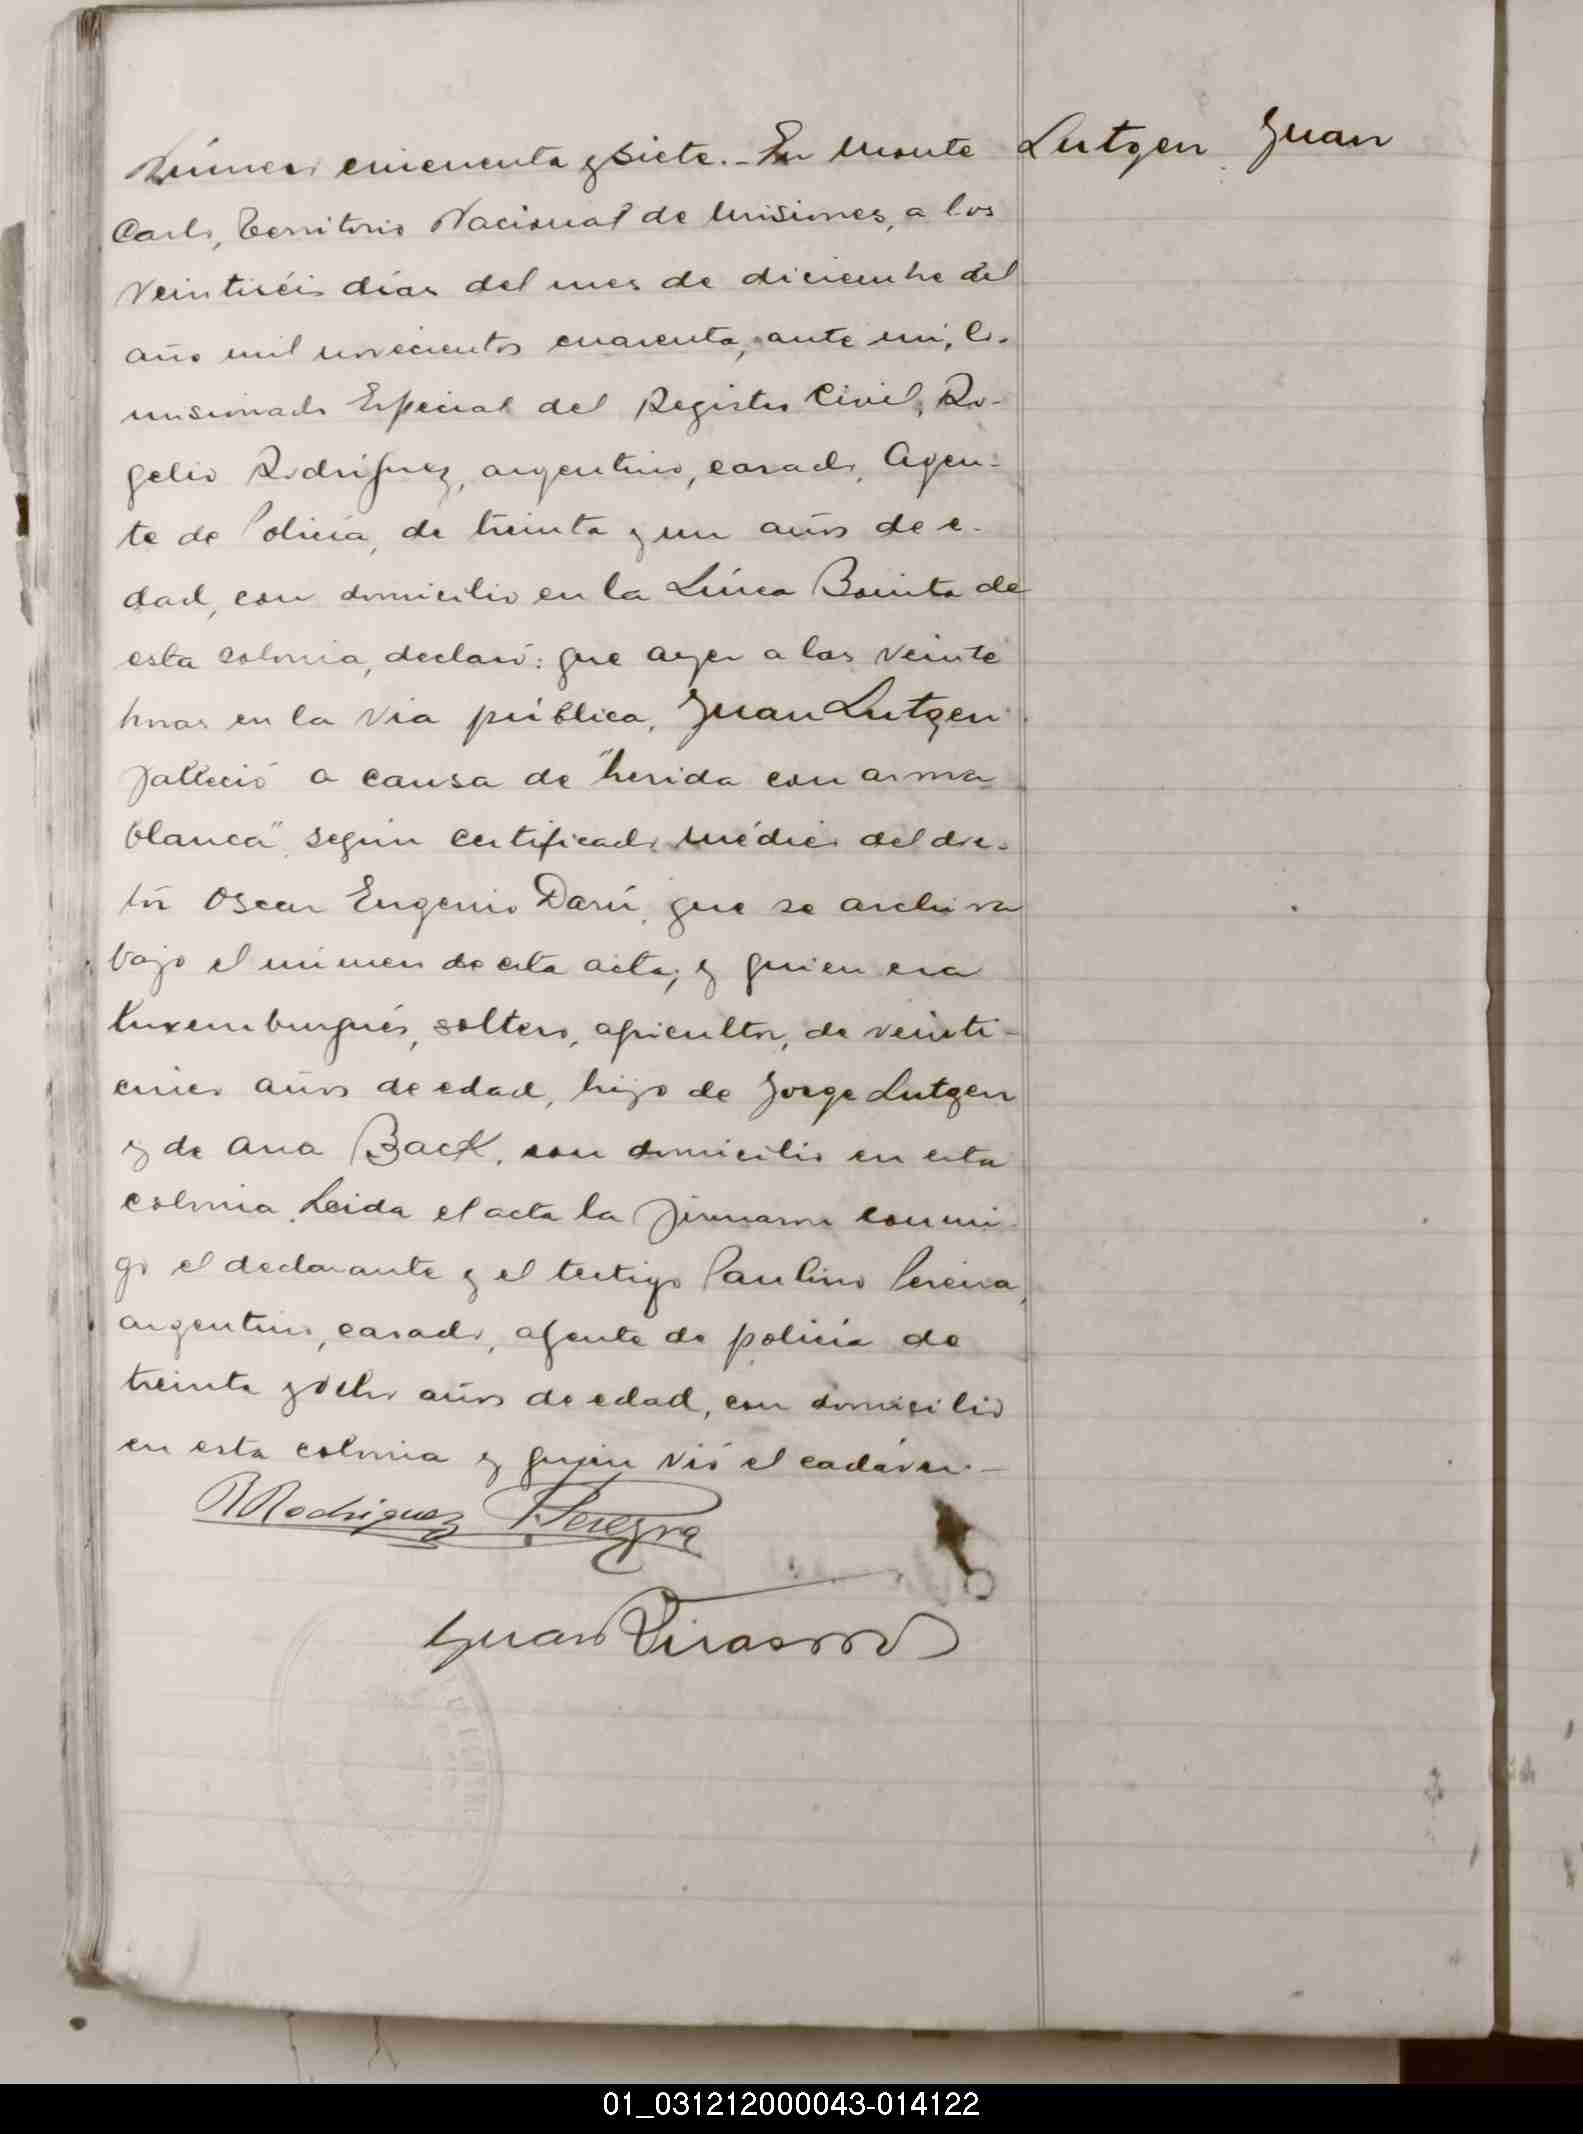 Número cincuenta y siete.- En Monte
Lutgen Juan
Carlo, Territorio Nacional de Misiones, a los
veintiséis días del mes de diciembre del
año mil novecientos cuarenta, ante mi, Co-
misionado Especial del Registro Civil, Ro-
gelio Rodríguez, argentino, casado, Agen-
te de Policía, de treinta y un años de e-
dad, con domicilio en la Línea Bonita de
esta colonia, declaró: que ayer a las veinte
horas en la via pública, Juan Lutgen
falleció a causa de "herida con arma
blanca" según certificado médico del doc-
tor Oscar Eugenio Darú, que se archiva
bajo el número de esta acta; y quien era
luxemburgués, soltero, agricultor, de veinti-
cinco años de edad, hijo de Jorge Lutgen
y de Ana Back, con domicilio en esta
colonia. Leida el acta la firmaron conmi-
go el declarante y el testigo Paulino Pereira,
argentino, casado, agente de policía de
treinta y ocho años de edad, con domicilio
en esta colonia y quien vió el cadáver.-
RRodriguez PPereyra
Juan
01_031212000043-014122